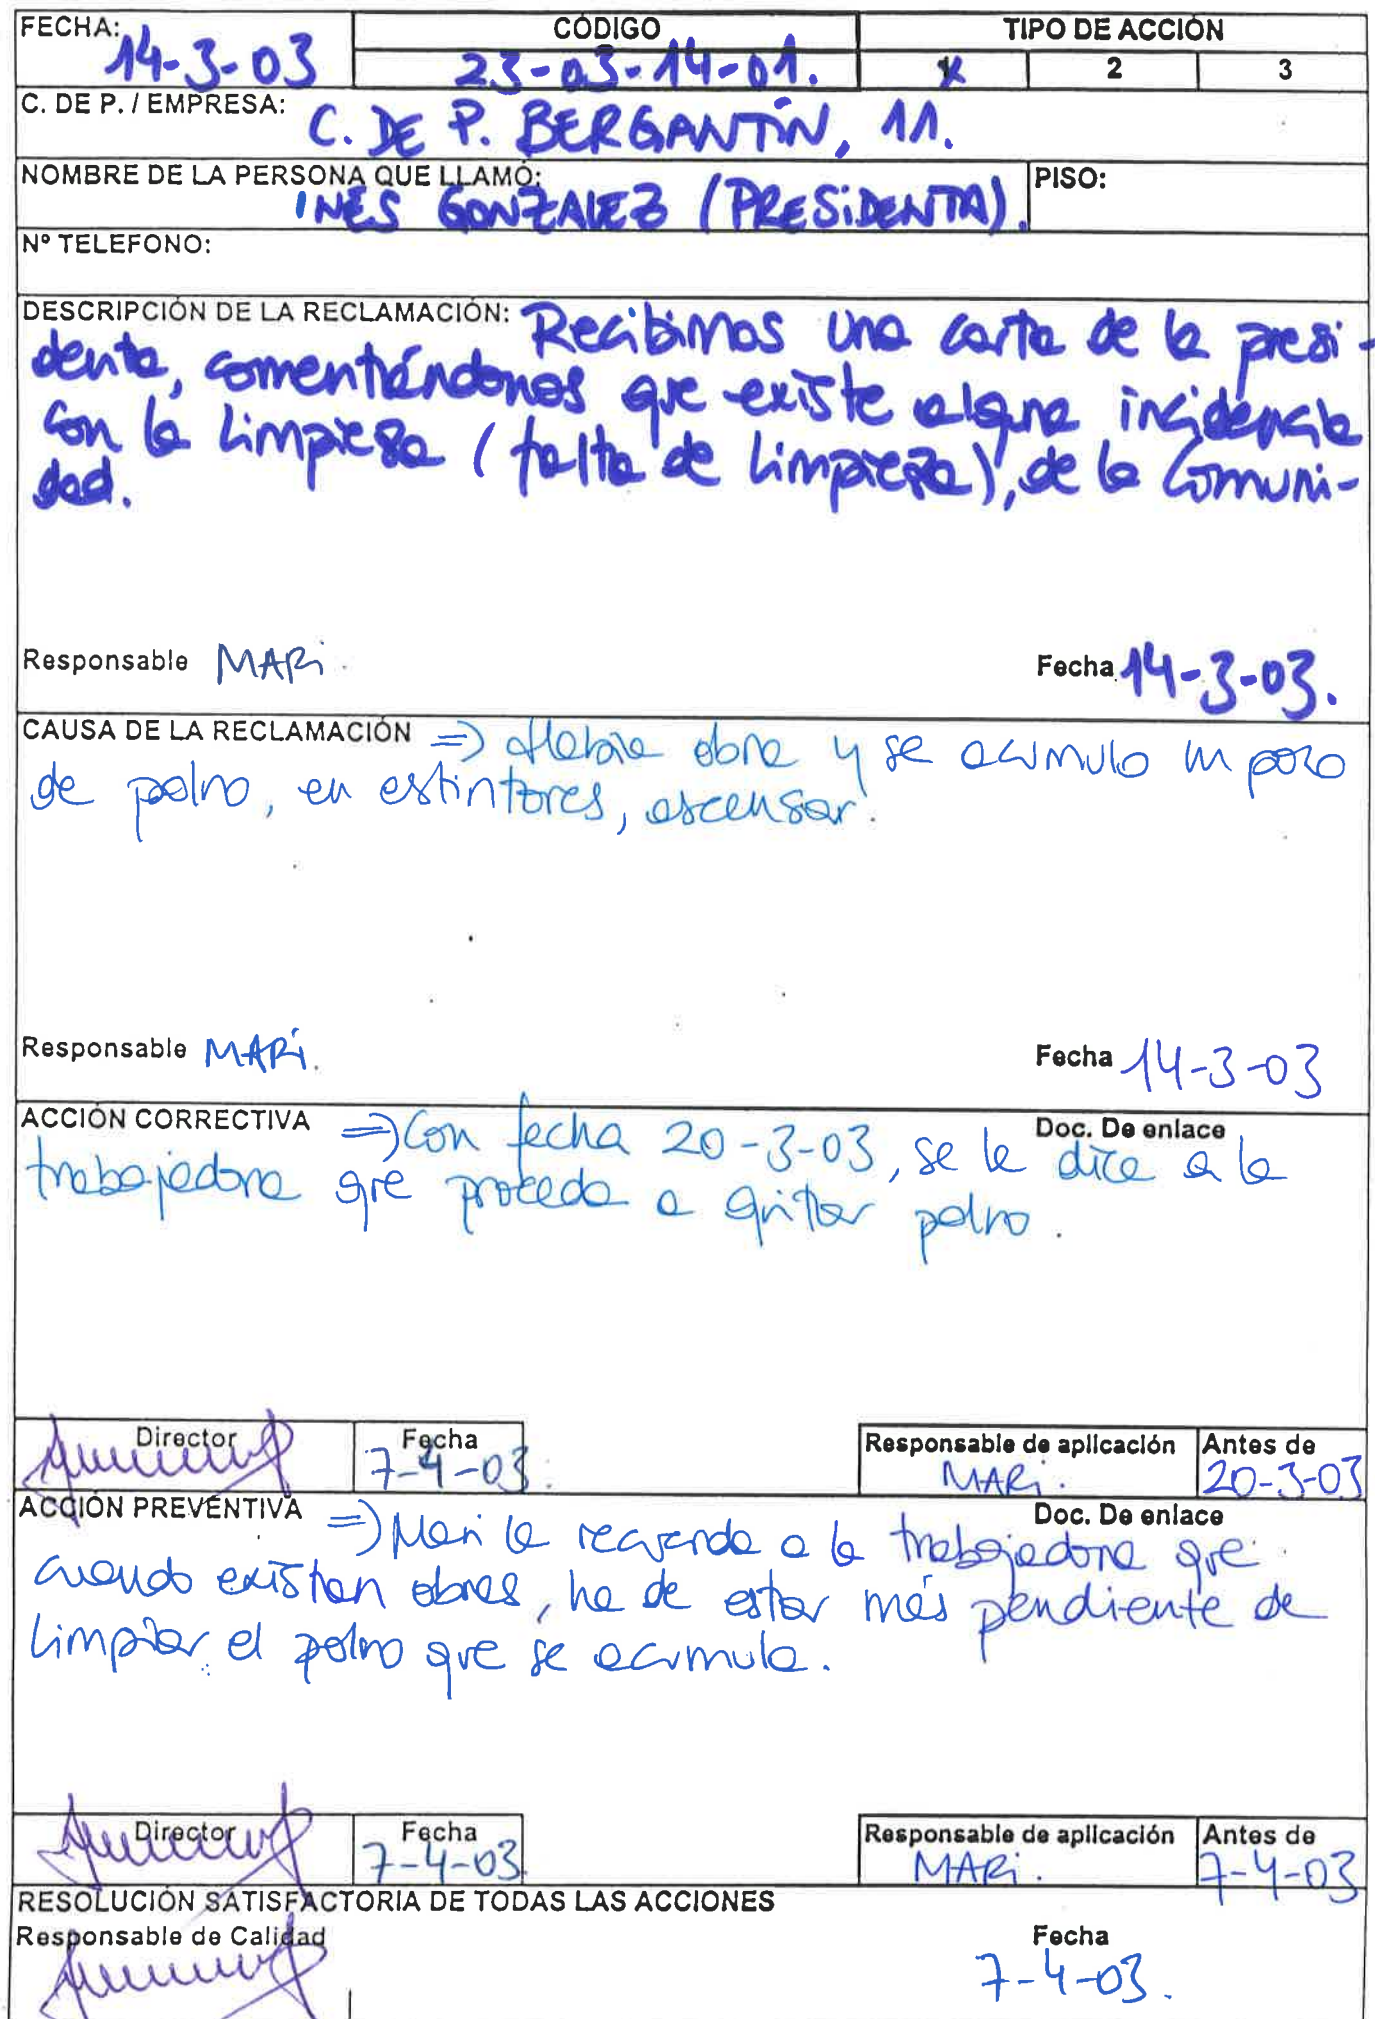 FECHA: 14-3-03
CÓDIGO
23-03-14-01.
TIPO DE ACCIÓN
1 2 3
C. DE P. / EMPRESA: C. DE P. BERGANTÍN, 11.
NOMBRE DE LA PERSONA QUE LLAMÓ: INÉS GONZALEZ (PRESIDENTA).
PISO:
Nº TELEFONO:
DESCRIPCIÓN DE LA RECLAMACIÓN: Recibimos una carta de la presi-
denta, comentándonos que existe alguna incidencia
con la limpieza (falta de limpieza), de la Comuni-
dad.
Responsable MARi.
Fecha 14-3-03.
CAUSA DE LA RECLAMACIÓN => Habia obra y se acumulo un poco
de polvo, en estintores, ascensor.
Responsable MARi.
Fecha 14-3-03
ACCIÓN CORRECTIVA => Con fecha 20-3-03, se le dice a la
Doc. De enlace
trabajadora que proceda a quitar polvo.
Director
Fecha
7-4-03.
Responsable de aplicación
MARi.
Antes de
20-3-03
ACCIÓN PREVENTIVA => Mari le recuerda a la trabajadora que
Doc. De enlace
cuando existan obras, ha de estar más pendiente de
limpiar el polvo que se acumula.
Director
Fecha
7-4-03
Responsable de aplicación
MARi.
Antes de
7-4-03
RESOLUCIÓN SATISFACTORIA DE TODAS LAS ACCIONES
Responsable de Calidad
Fecha
7-4-03.